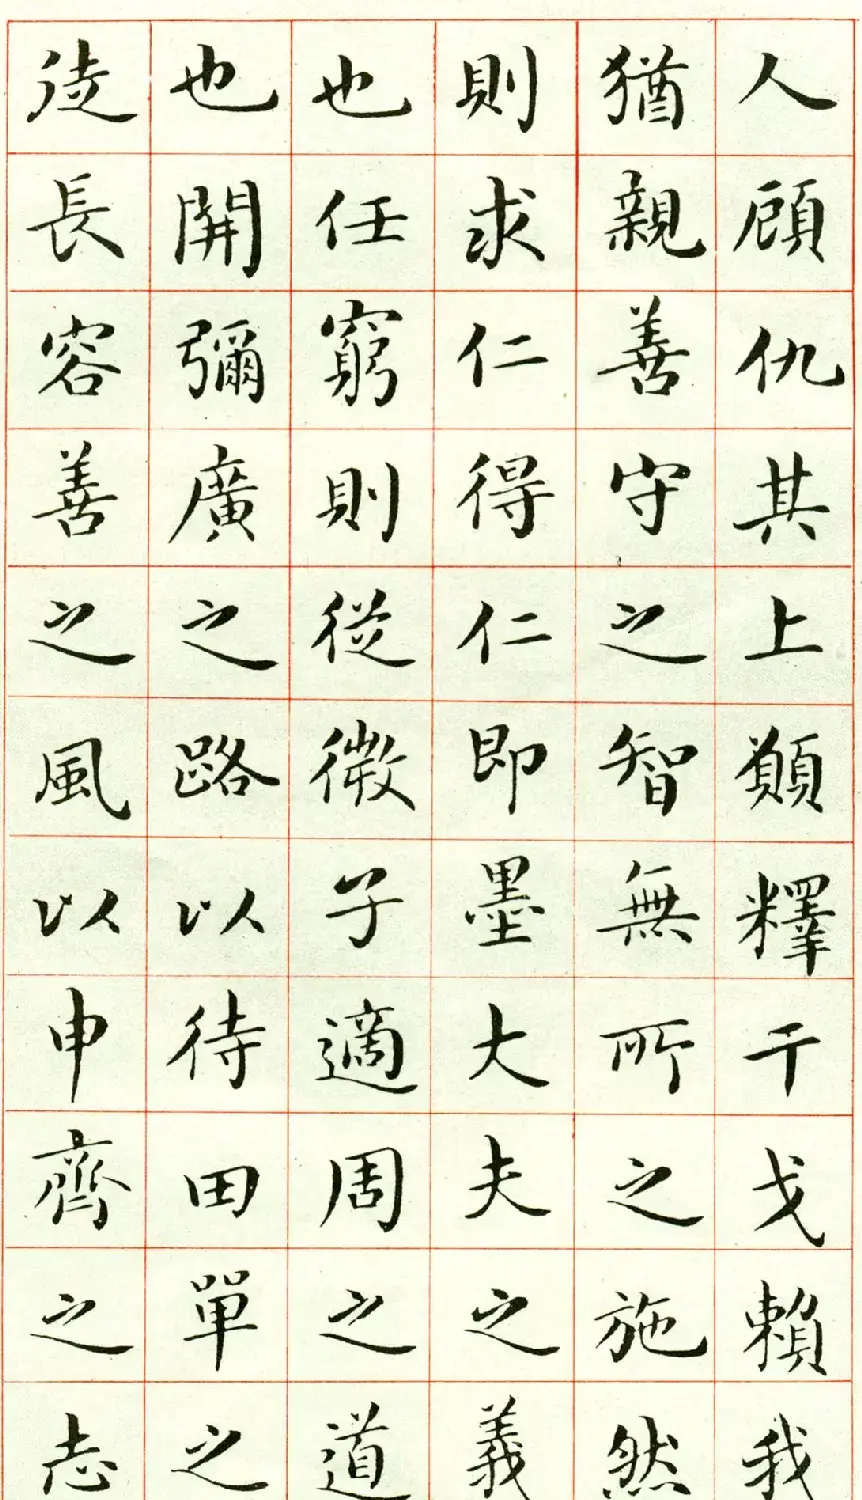 人顧仇其上願釋干戈賴我
猶親善守之智無所之施然
則求仁得仁即墨大夫之義
也任窮則從微子適周之道
也開彌廣之路以待田單之
徒長容善之風以申齊之志